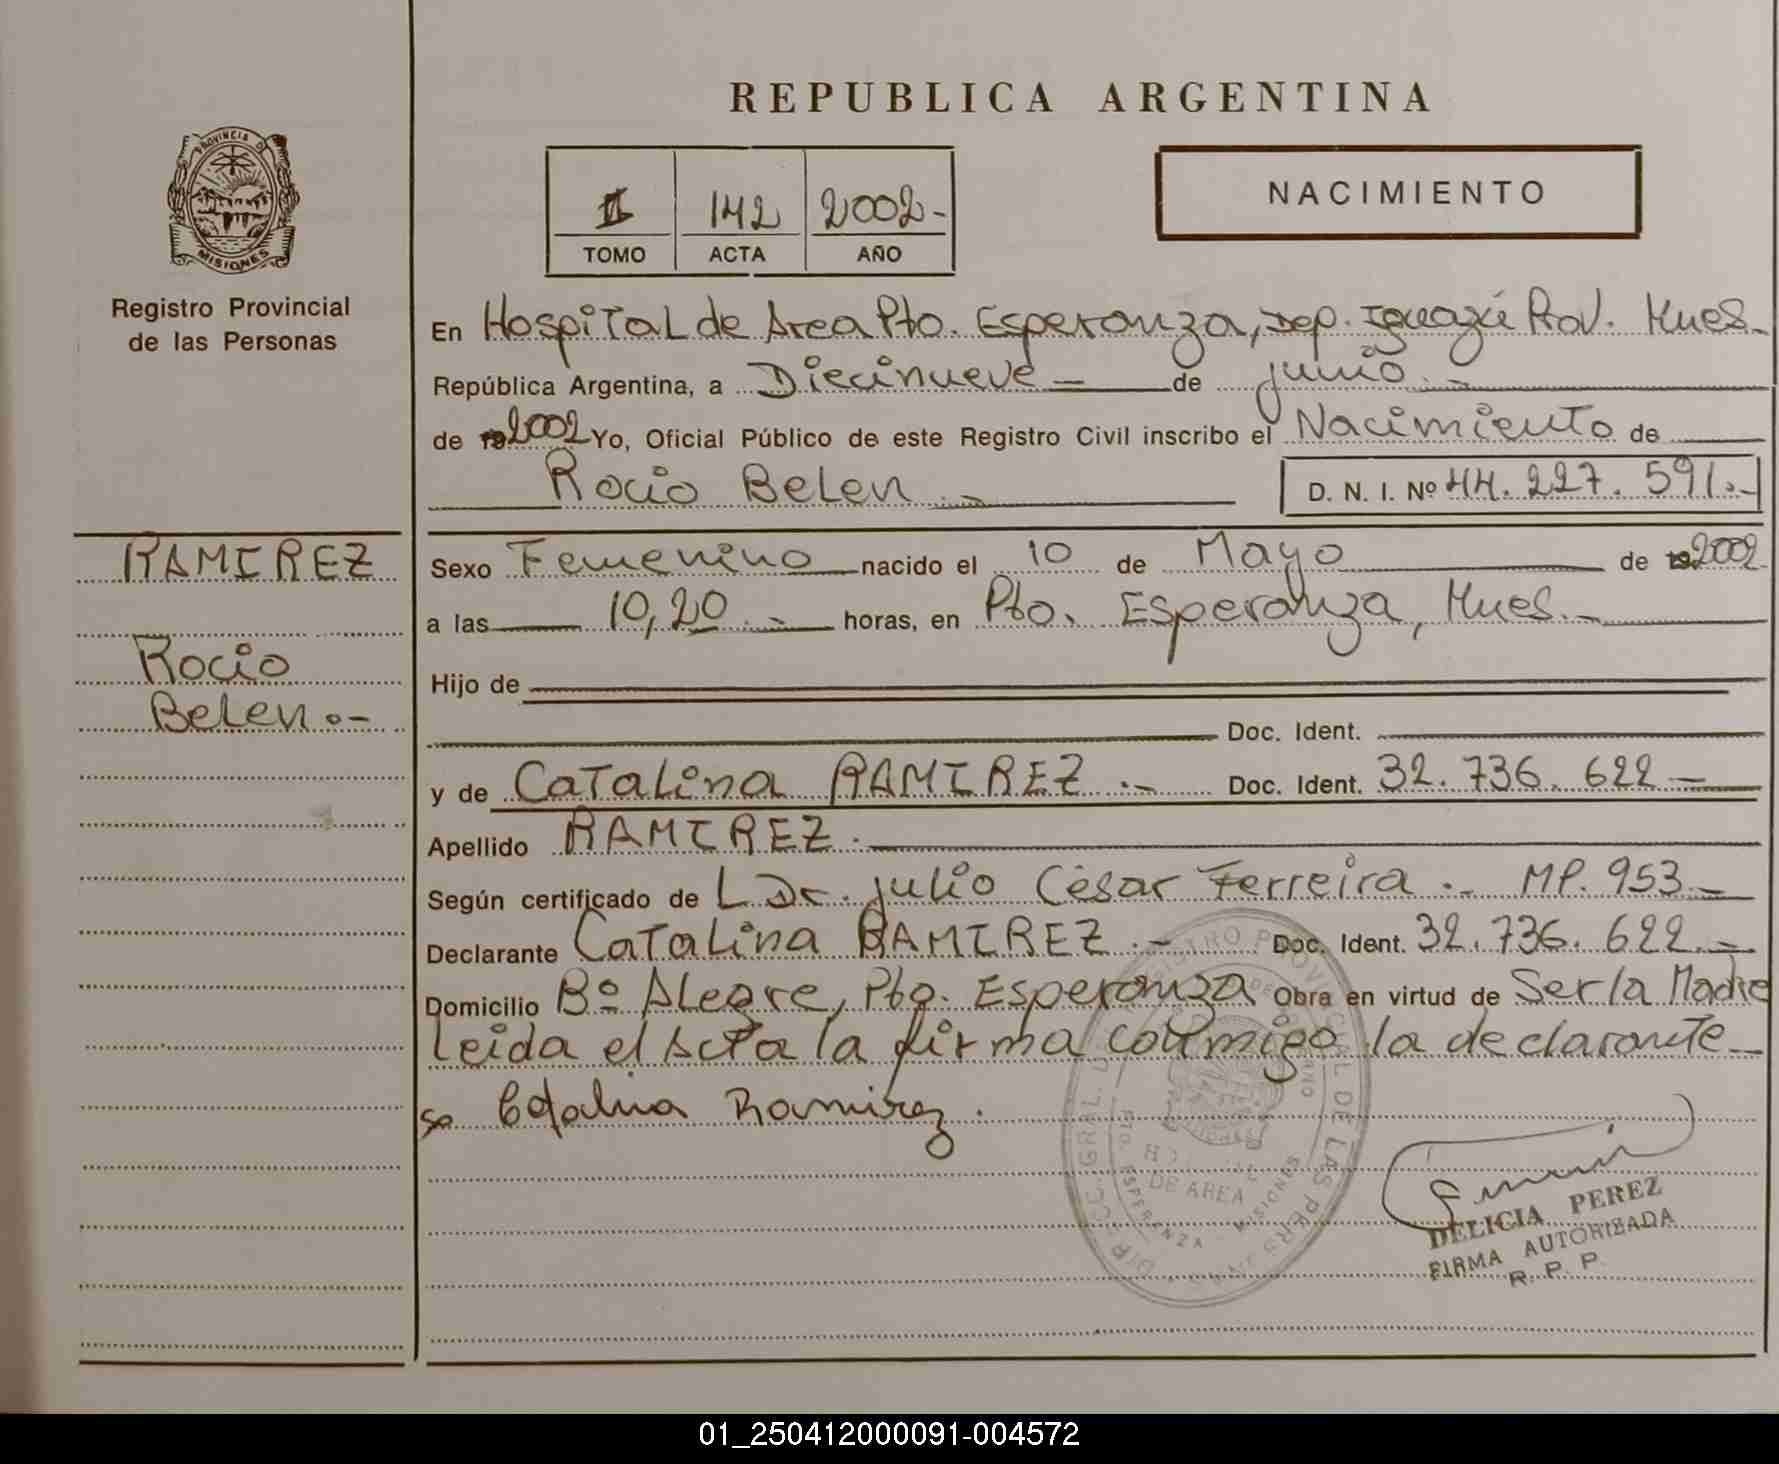 REPUBLICA ARGENTINA
PROVINCIA D
MISIONES
Registro Provincial
de las Personas
142 2002-
TOMO ACTA AÑO
NACIMIENTO
En Hospital de Area Pto. Esperanza, Dep. Iguazú Prov. Mnes.-
República Argentina, a Diecinueve - de junio. -
de 2002 Yo, Oficial Público de este Registro Civil inscribo el Nacimiento de
Rocio Belen.-
D. N. I. Nº 44.227.591.-
RAMIREZ
Rocio
Belen.-
Sexo Femenino nacido el 10 de Mayo de 2002
a las 10,20.- horas, en Pto. Esperanza, Mnes.-
Hijo de
Doc. Ident.
y de Catalina RAMIREZ.- Doc. Ident. 32.736.622-
Apellido RAMIREZ.
Según certificado de L Dr. julio César Ferreira.- MP. 953-
Declarante Catalina RAMIREZ.- Doc. Ident. 32.736.622.-
Domicilio Bº Alegre, Pto. Esperanza Obra en virtud de Ser la Madre
Leida el Acta la firma conmigo la declarante-
Catalina Ramirez.
DE AREA
PTO. ESPERANZA - MISIONES
DELICIA PEREZ
FIRMA AUTORIZADA
R. P. P.
01_250412000091-004572